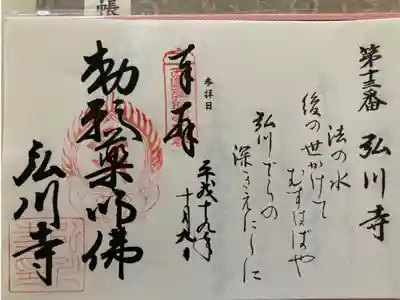 帳
第十三番 弘川寺
法の水
後の世かけて
むすはばや
弘川でらの
深きえにしに
参拝日
平成十九年
十月九日
奉拝
勅願薬師佛
弘川寺